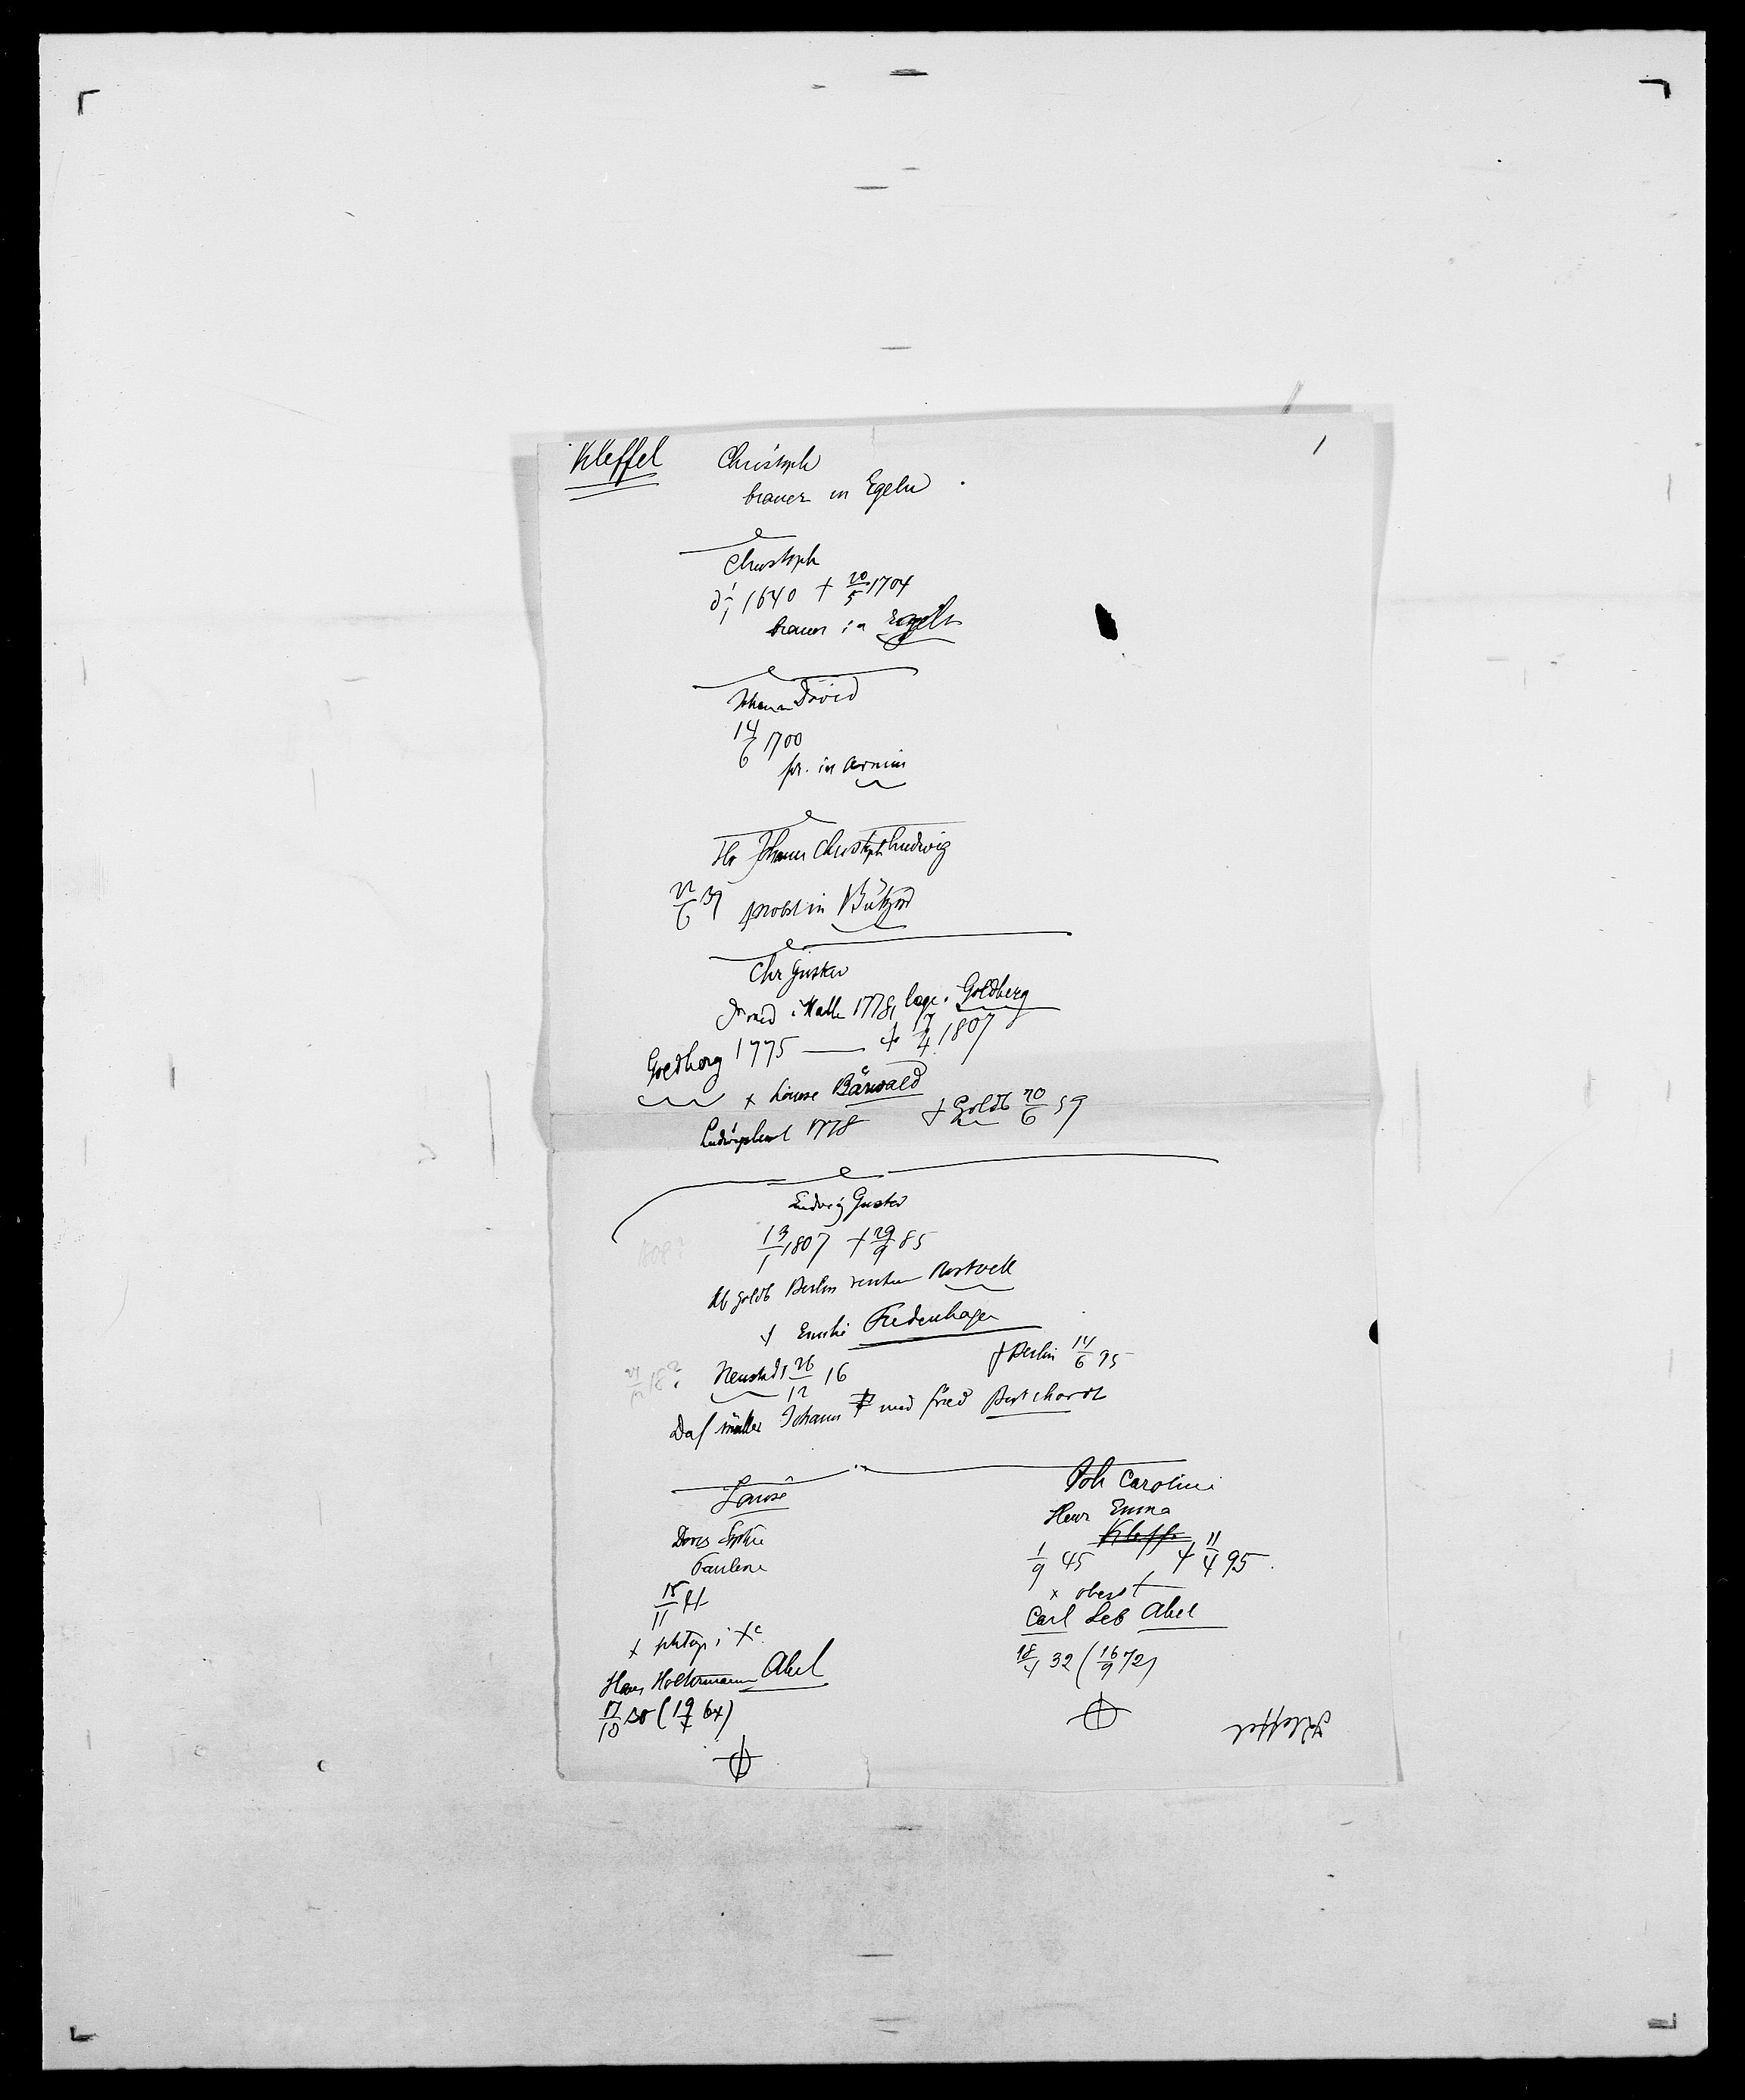 Kleffel Christoph 1
brauer in Egeln
Christoph
1640 † 20/5 1704
brauer in Egeln
Johann David
14/6 1700
pr. in Arnim
Johann Christoph Ludwig
22/6 37 probst in Bützow
Chr Gustav
Dr med i Halle 1778, Goldberg
Goldberg 1775 — † 17/4 1807
x Louise Bärwald
Ludwigslust 1778 † Goldb 20/6 59
Ludwig Gustav
1808?
13/1 1807 † 29/9 85
Goldb Berlin Rostock
x Emilie Fredenhagen
18? Neustadt 26/12 16 † Berlin 14/6 95
Johann med fried Burchardt
Louise
Doris Sophie
Pauline
15/11
x
Hans Holtermann Abel
17/10 30 (19/7 64)
Joh Caroline
Henr Emma
Kleffe
1/9 45 † 11/4 95
x oberst
Carl Leb Abel
18/4 32 (16/9 72)
Kleffel